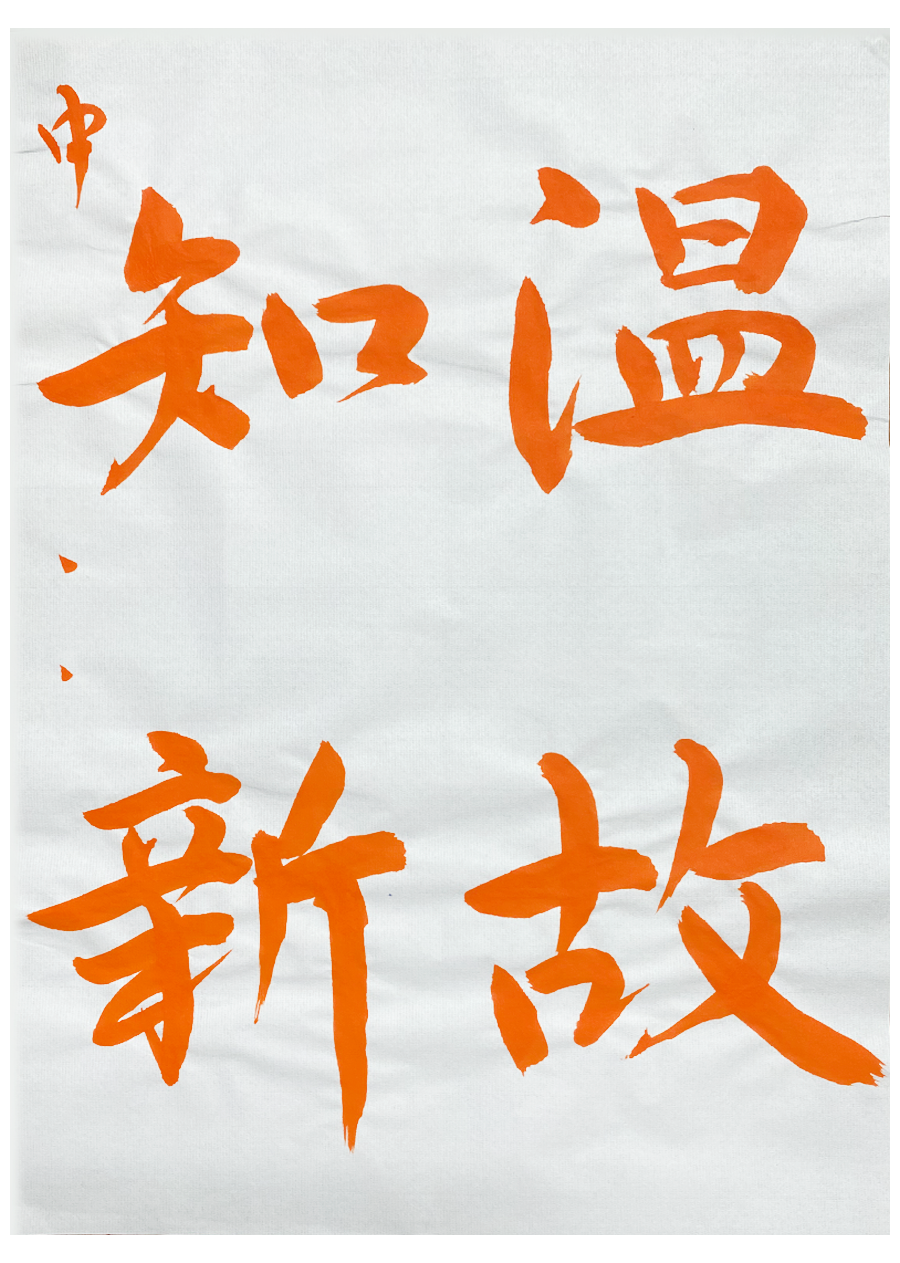 温故
知新
申